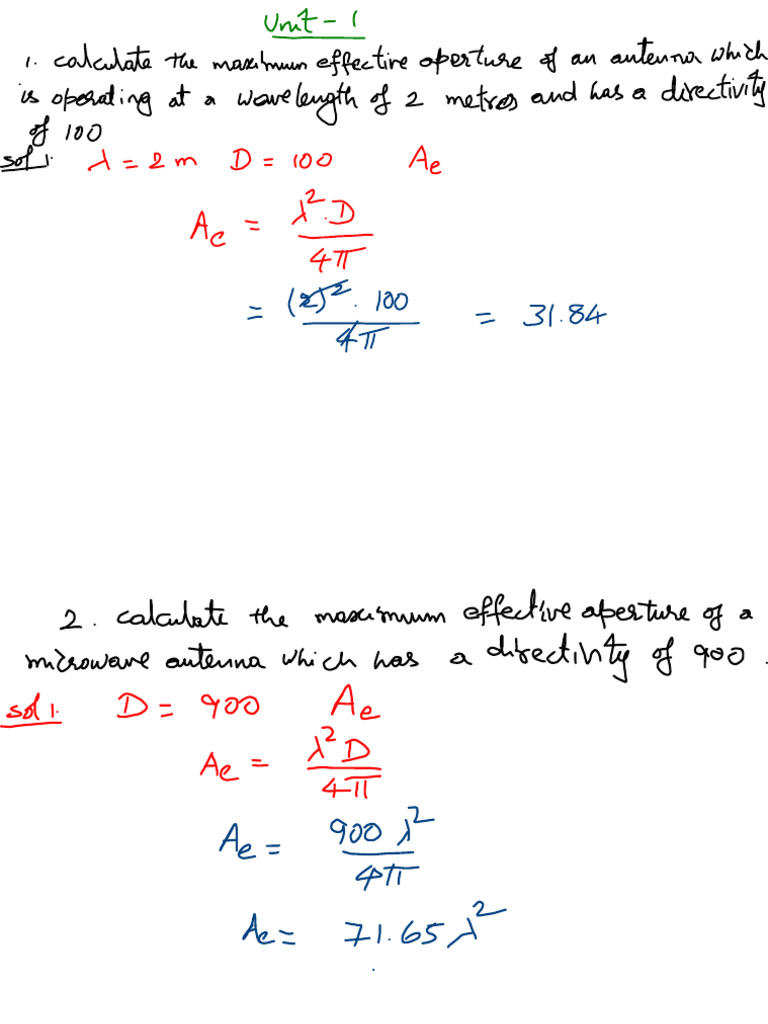 Unit - 1
1. calculate the maximum effective aperture of an antenna which
is operating at a wavelength of 2 metres and has a directivity
of 100
sol 1. λ = 2 m D = 100 Ae
Ae = λ².D / 4π
= (2)². 100 / 4π = 31.84
2. calculate the maximum effective aperture of a
microwave antenna which has a directivity of 900.
sol 1. D = 900 Ae
Ae = λ²D / 4π
Ae = 900 λ² / 4π
Ae = 71.65 λ²